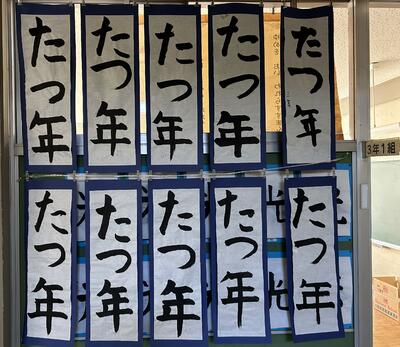 たつ年
たつ年
たつ年
たつ年
たつ年
3年1組
たつ年
たつ年
たつ年
たつ年
たつ年
光